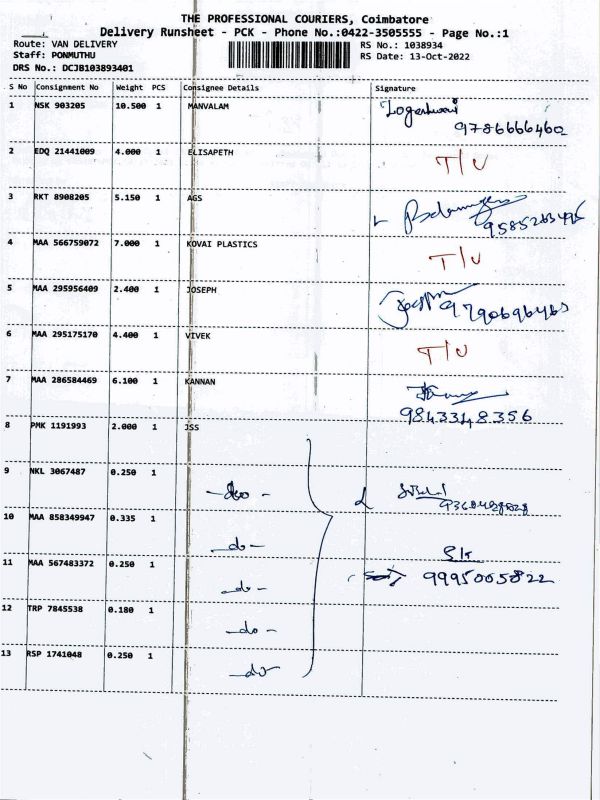 THE PROFESSIONAL COURIERS, Coimbatore
Delivery Runsheet - PCK - Phone No.:0422-3505555 - Page No.:1
Route: VAN DELIVERY RS No.: 1038934
Staff: PONMUTHU RS Date: 13-Oct-2022
DRS No.: DCJB103893401
S No Consignment No Weight PCS Consignee Details Signature
1 NSK 903205 10.500 1 MANVALAM
9786666460
2 EDQ 21441009 4.000 1 ELISAPETH T/U
3 RKT 8908205 5.150 1 AGS
4 MAA 566759072 7.000 1 KOVAI PLASTICS T/U
5 MAA 295956409 2.400 1 JOSEPH
6 MAA 295175170 4.400 1 VIVEK T/U
7 MAA 286584469 6.100 1 KANNAN
9843348356
8 PMK 1191993 2.000 1 JSS
9 NKL 3067487 0.250 1
-do-
10 MAA 858349947 0.335 1
-do-
11 MAA 567483372 0.250 1 9995005822
-do-
12 TRP 7845538 0.180 1
-do-
13 RSP 1741048 0.250 1
-do-